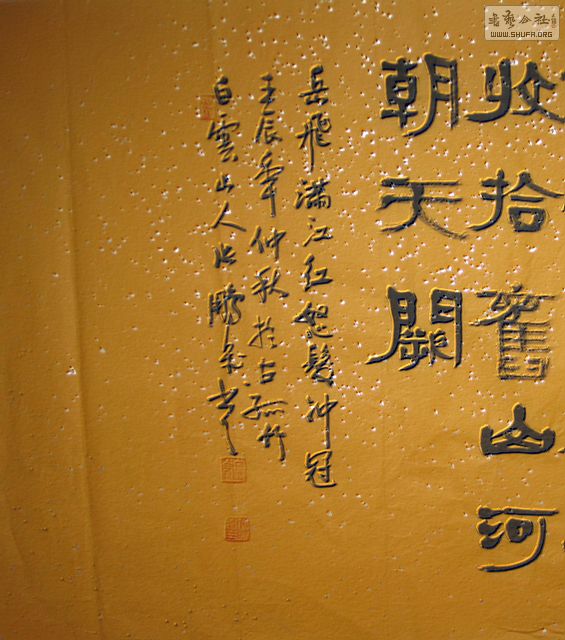 收拾舊山河
朝天闕
岳飛滿江紅怒髮沖冠
壬辰年仲秋於古孤竹
白雲山人張鵬飛書
書艺公社
WWW.SHUFA.ORG